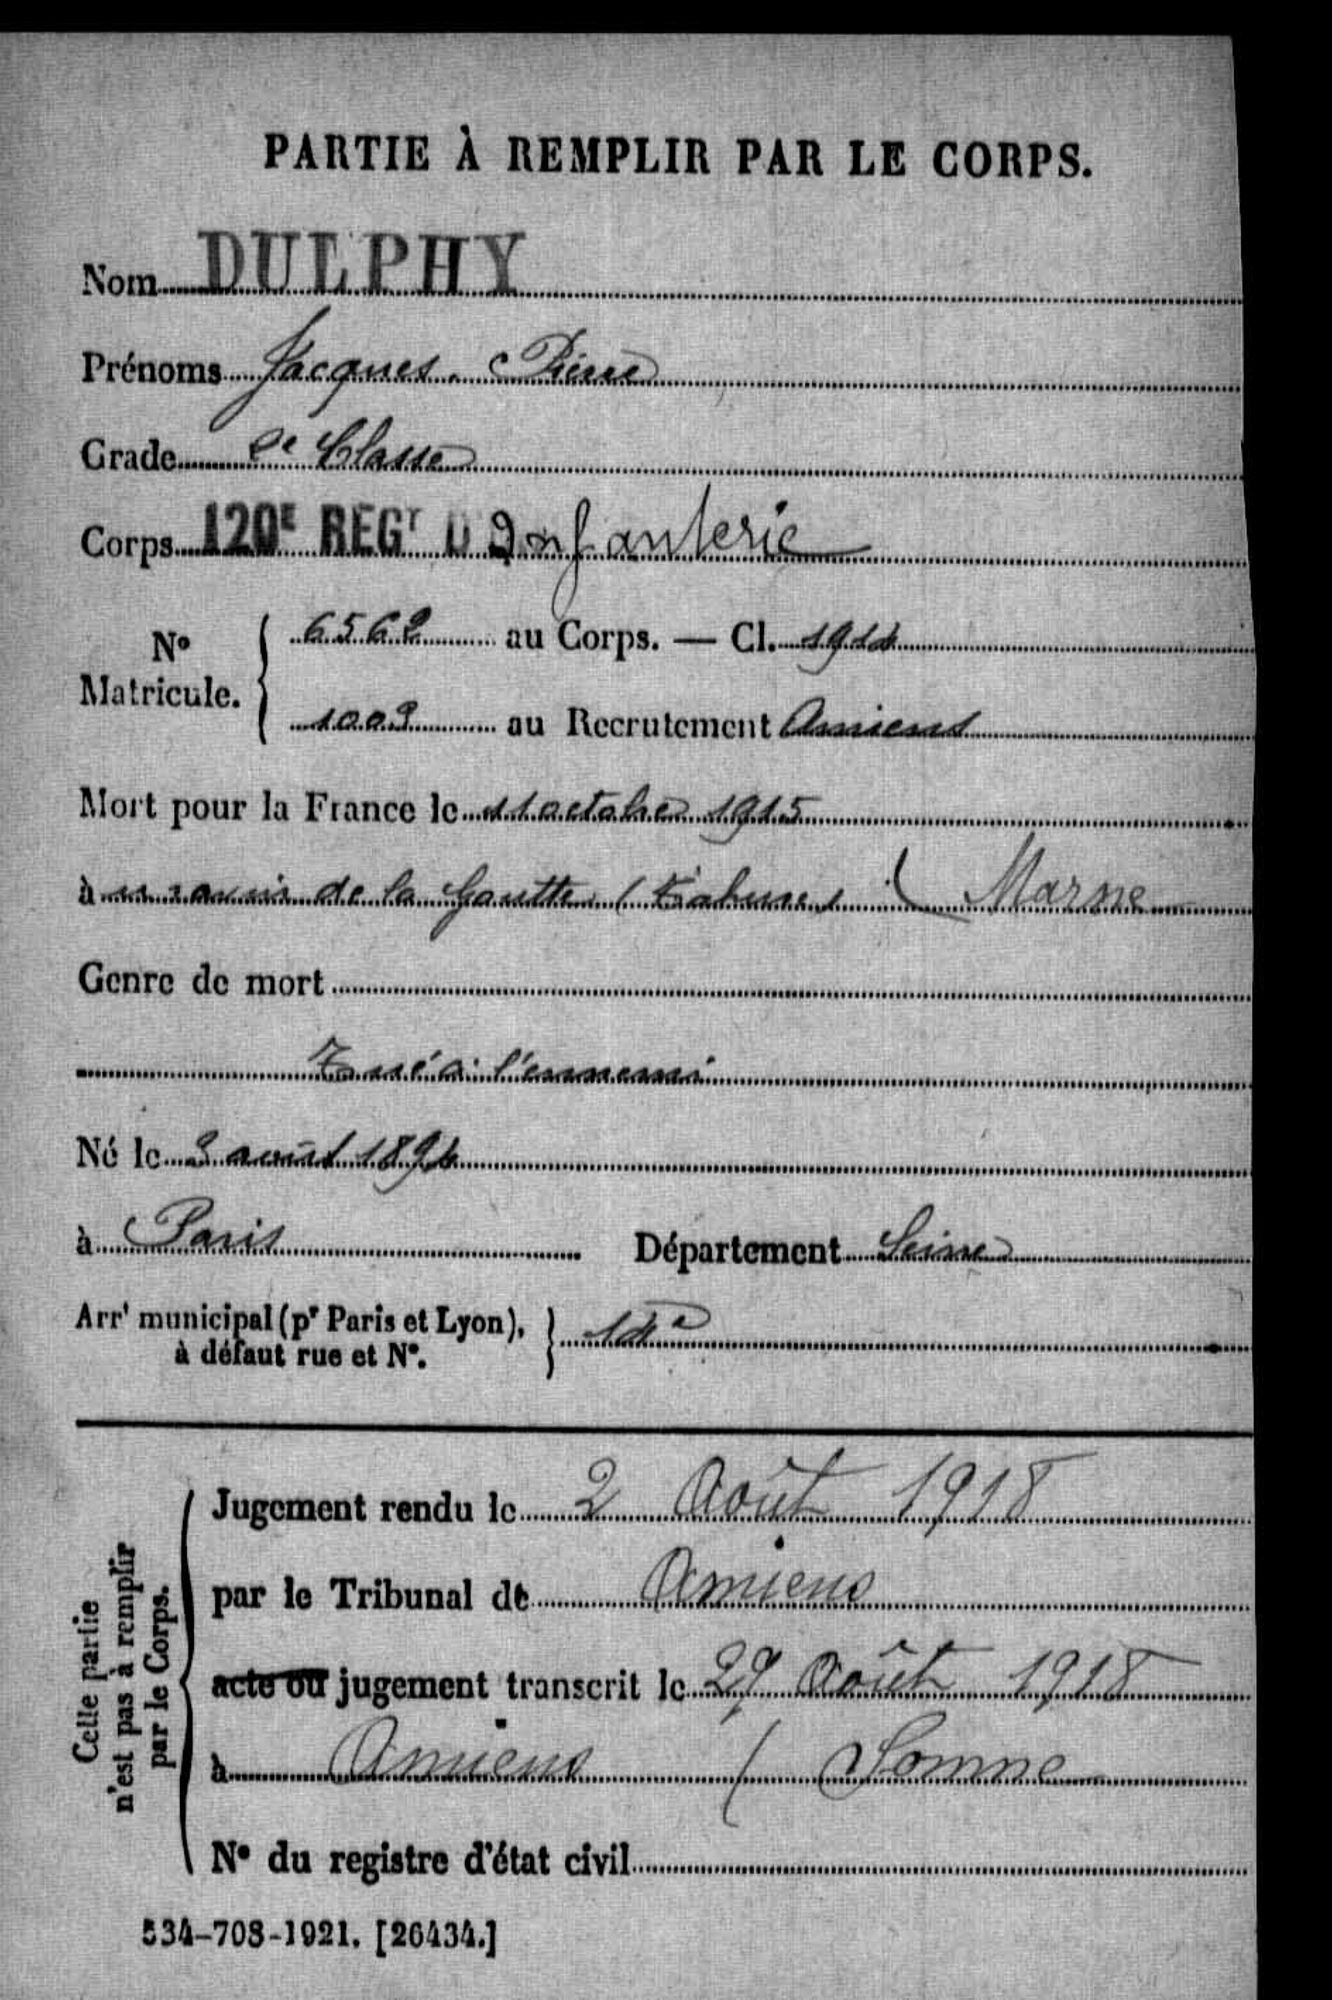 PARTIE À REMPLIR PAR LE CORPS.
Nom DULPHY
Prénoms Jacques. Pierre
Grade 2e Classe
Corps 120E REGT D Infanterie
No Matricule. 6562 au Corps. — Cl. 1914
1002 au Recrutement Amiens
Mort pour la France le 11 octobre 1915
à ravin de la Goutte (Tahure) ( Marne
Genre de mort
Tué à l'ennemi
Né le 2 août 1894
à Paris Département Seine
Arrt municipal (pr Paris et Lyon), à défaut rue et No. 14e
Cette partie n'est pas à remplir par le Corps.
Jugement rendu le 2 Août 1918
par le Tribunal de Amiens
acte ou jugement transcrit le 29 Août 1918
à Amiens ( Somme
No du registre d'état civil
534-708-1921. [26434.]